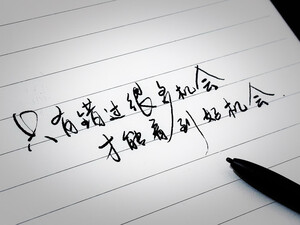 只有错过很多机会
才能看到好机会.